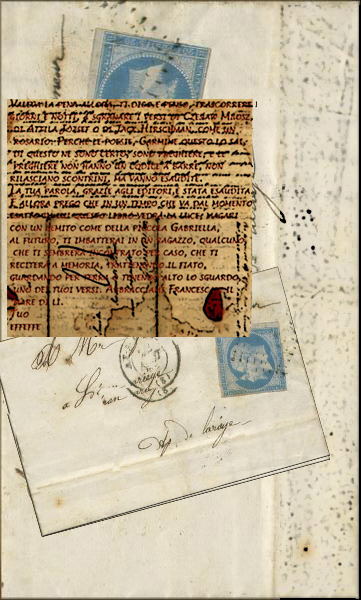 VALEVA LA PENA ALLORA, TI DICO E PENSO, TRASCORRERE
GIORNI E NOTTI, A SGRANARE I VERSI DI CZESLAW MILOSZ,
DI ATTILA JOZSEF O DI JACK HIRSCHMAN COME UN
ROSARIO. PERCHÉ LE POESIE, CARMINE, QUESTO LO SAI,
DI QUESTO NE SONO CERTO, SONO PREGHIERE, E LE
PREGHIERE NON HANNO UN CODICE A BARRE, NON
RILASCIANO SCONTRINI, MA VANNO ESAUDITE.
LA TUA PAROLA, GRAZIE AGLI EDITORI, È STATA ESAUDITA.
E ALLORA PREGO CHE IN UN TEMPO CHE VA DAL MOMENTO
QUESTO LIBRO VEDRÀ LA LUCE, MAGARI
CON UN GEMITO COME DELLA PICCOLA GABRIELLA,
AL FUTURO, TI IMBATTERAI IN UN RAGAZZO, QUALCUNO
CHE TI SEMBRERÀ INCONTRATO PER CASO, CHE TI
RECITERÀ A MEMORIA, TRATTENENDO IL FIATO,
GUARDANDO PER TERRA O TENENDO ALTO LO SGUARDO,
UNO DEI TUOI VERSI. ABBRACCIALO, FRANCESCO, È IL
MARE DI LÌ.
TUO
EFFEFFE
M
a
de lariège